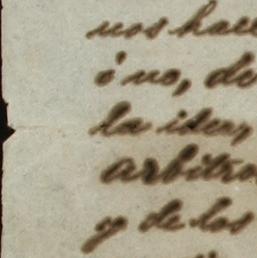 nos hace
ó no, de
la idea,
arbitra
y de los